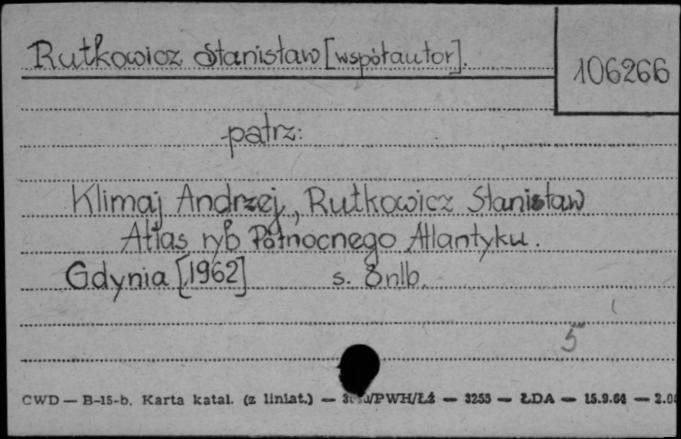 Rutkowicz Stanisław [współautor].
106266
patrz:
Klimaj Andrzej, Rutkowicz Stanisław
Atlas ryb Północnego Atlantyku.
Gdynia [1962] s. 8 nlb.
5
CWD — B-15-b. Karta katal. (z liniat.) — /PWH/Łź — 3255 — ŁDA — 15.9.64 —